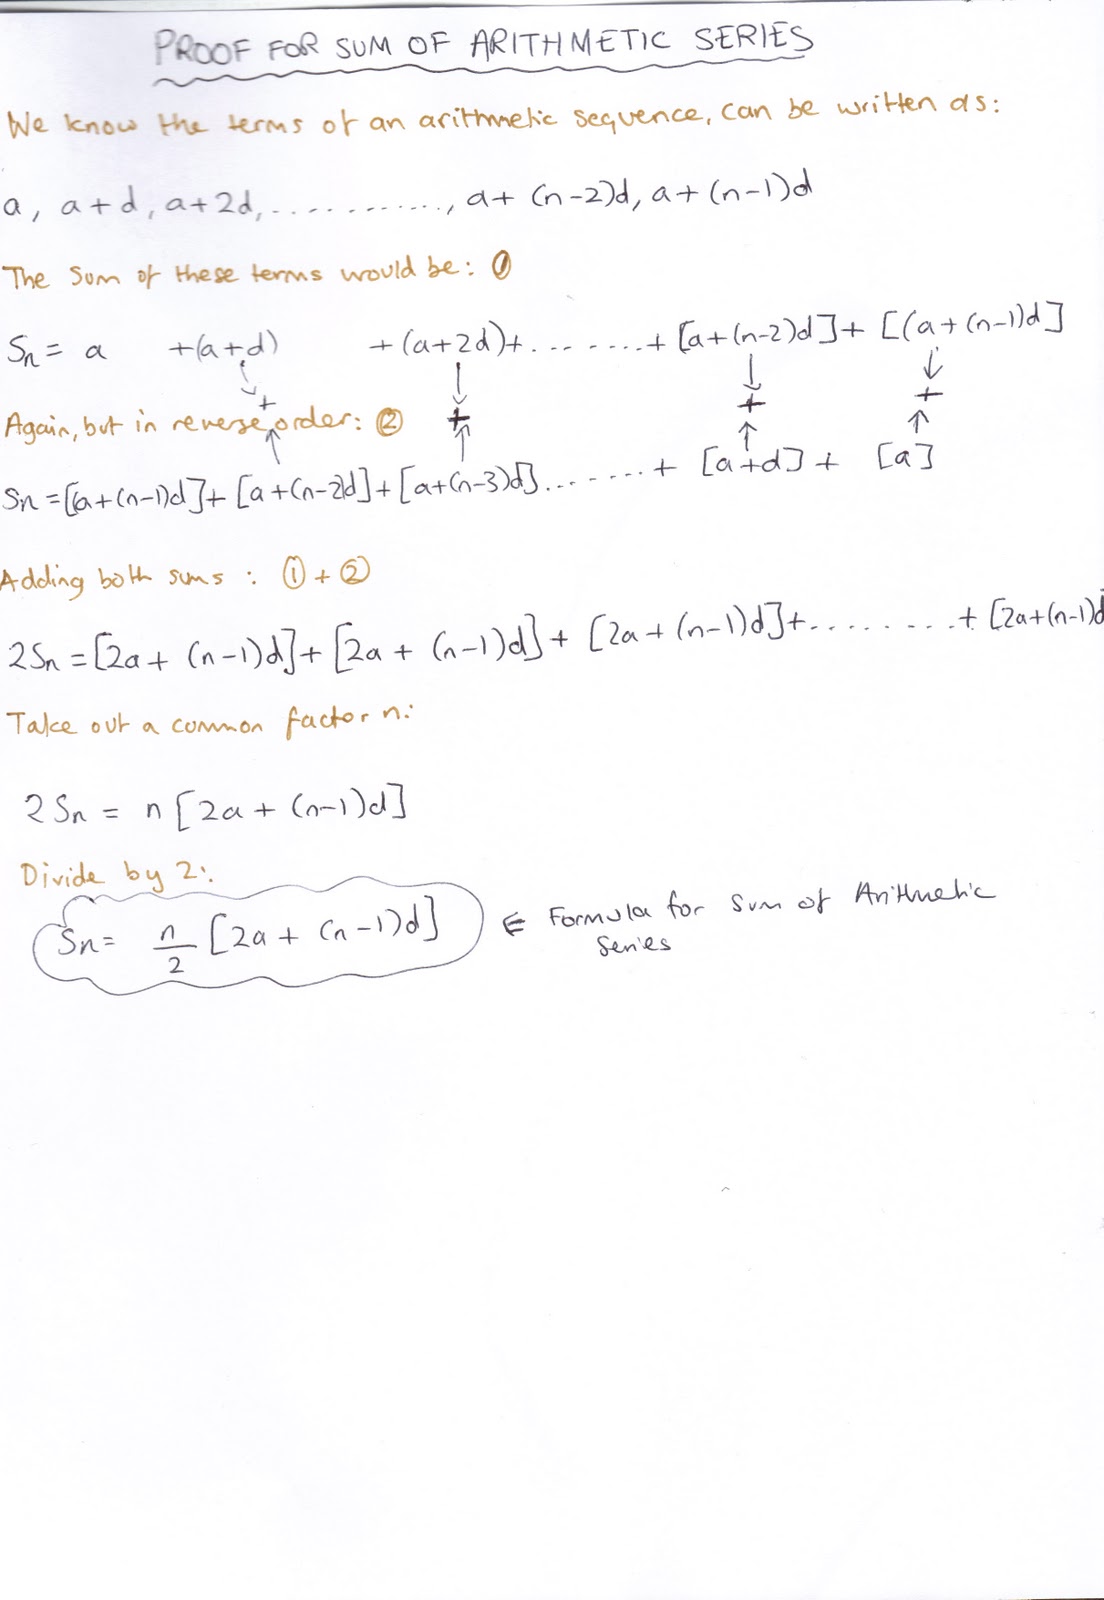 PROOF FOR SUM OF ARITHMETIC SERIES
We know the terms of an arithmetic sequence, can be written as:
a, a+d, a+2d, ............, a+ (n-2)d, a+(n-1)d
The sum of these terms would be: ①
Sn = a +(a+d) +(a+2d)+........+ [a+(n-2)d]+ [(a+(n-1)d]
+ + + +
Again, but in reverse order: ②
Sn =[a+(n-1)d]+ [a+(n-2)d]+[a+(n-3)d].......+ [a+d] + [a]
Adding both sums : ① + ②
2Sn =[2a+ (n-1)d]+ [2a + (n-1)d]+ [2a+ (n-1)d]+.........+ [2a+(n-1)d
Take out a common factor n:
2Sn = n[2a+ (n-1)d]
Divide by 2:
Sn= n/2 [2a+ (n-1)d] ⇐ Formula for sum of Arithmetic
series